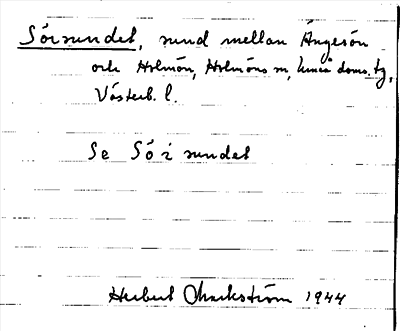 Sörsundet, sund mellan Ängesön
och Holmön, Holmöns sn, Umeå doms. tg,
Västerb. l.
Se Sö i sundet
Herbert Markström 1944